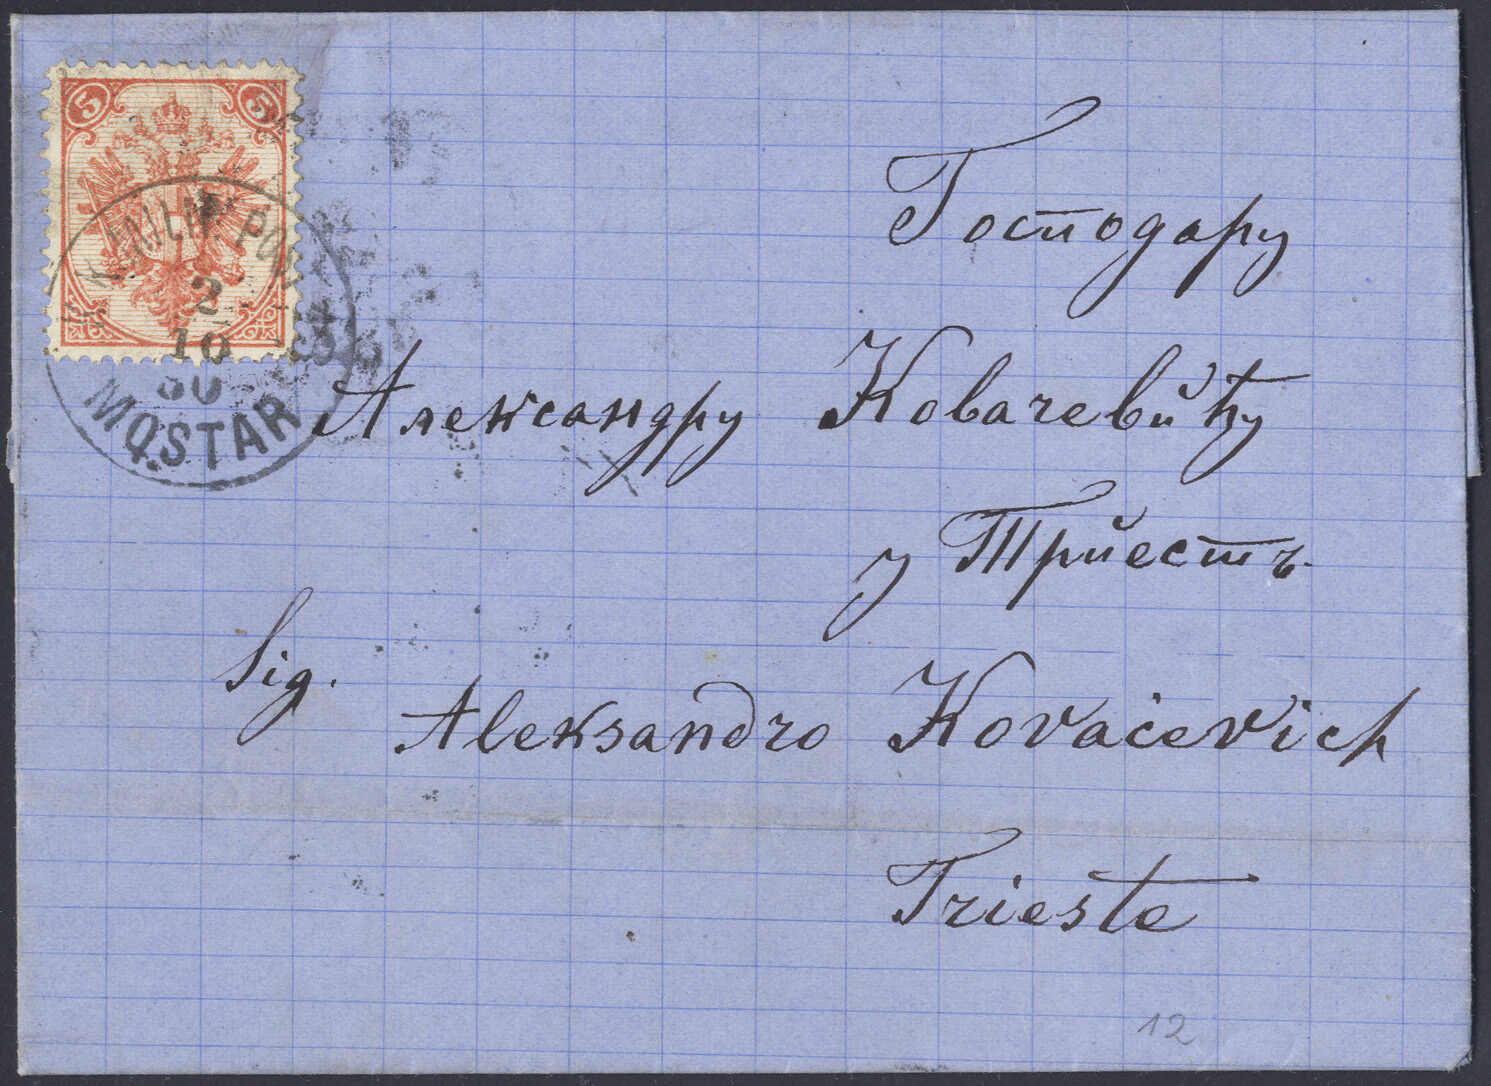 5 5
K. K. MILIT. POST
2
10
80
MOSTAR
Господару
Александру Ковачевићу
у Трйесть.
Sig.
Aleksandro Kovačevich
Trieste
12